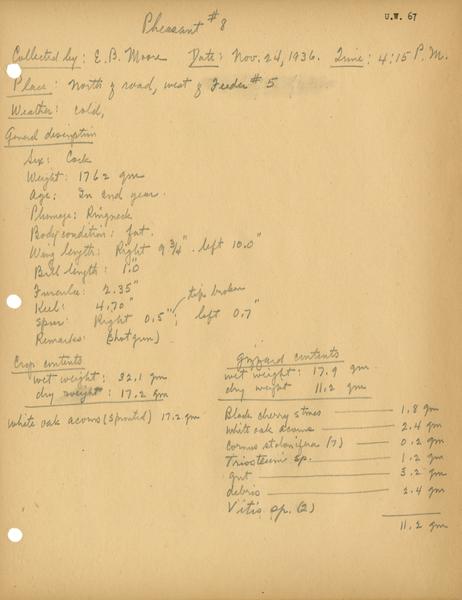 U.W. 67
Pheasant #8
Collected by: E. B. Moore Date: Nov. 24, 1936. Time: 4:15 P.M.
Place: North of road, west of Feeder #5
Weather: cold,
General description
Sex: Cock
Weight: 1762 gm
Age: In 2nd year.
Plumage: Ringneck
Body condition: fat.
Wing length: Right 9 3/4" . left 10.0"
Bill length: 1.0"
Furcula: 2.35"
Keel: 4.70" tip broken
Spur: Right 0.5"; left 0.7"
Remarks: (shotgun)
Crop contents
wet weight: 32.1 gm
dry weight: 17.2 gm
White oak acorns (sprouted) 17.2 gm
Gizzard contents
wet weight: 17.9 gm
dry weight 11.2 gm
Black cherry stones 1.8 gm
White oak acorns 2.4 gm
Cornus stolonifera (7) 0.2 gm
Triosteum sp. 1.2 gm
grit 3.2 gm
debris 2.4 gm
Vitis sp. (2)
11.2 gm